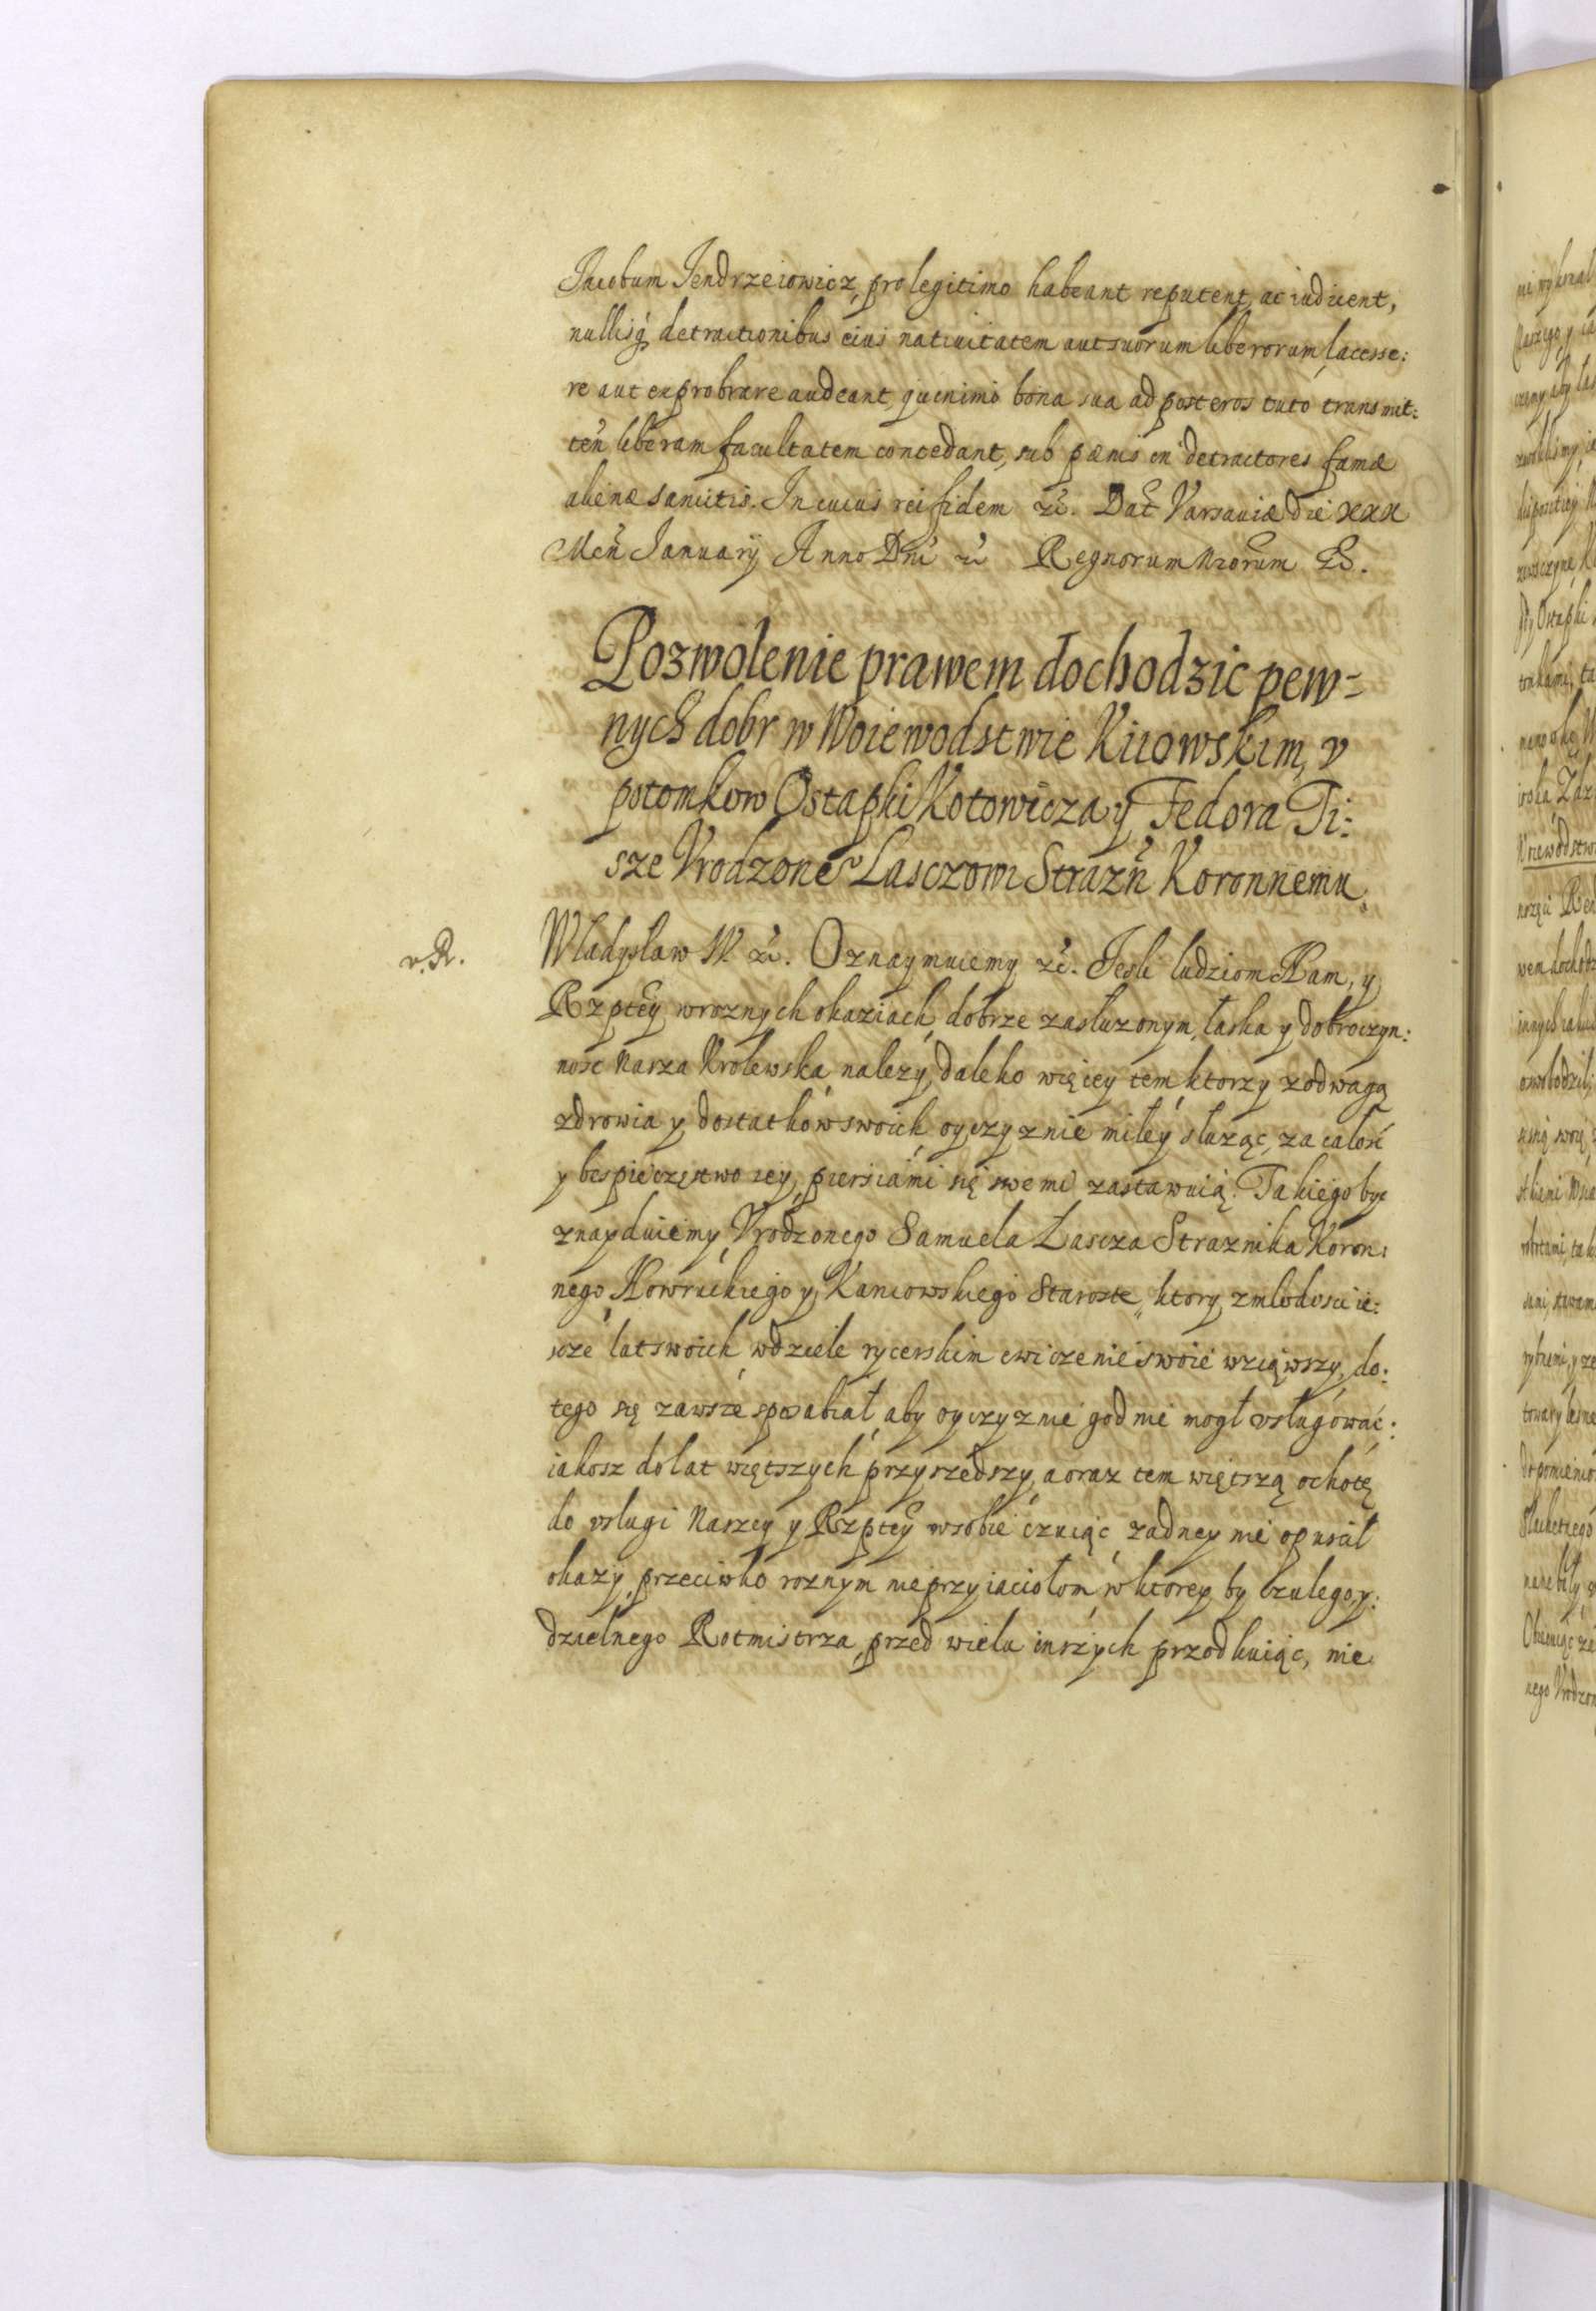 Jacobum Jendrzeiowicz, pro legitimo habeant reputent, ac iudicent,
nullisq́ detractionibus eius natiuitatem aut suorum liberorum, lacesse:
re aut exprobrare audeant, quinimó bona sua ad posteros tutó transmit:
ten̄ liberam facultatem concedant, sub pænis in detractores famæ
alienæ sancitis. In cuius rei fidem &c. Dat Varsauiæ die XXX
Men̄ January Anno Dn̄i &c Regnorum Nrorum &c.
Pozwolenie prawem dochodzic pew=
nych dobr w Woiewodstwie Kiiowskim, v
potomkow Ostapki Kotowicza y Fedora Ti:
sze Vrodzone͠ Lasczowi Strazn̄ Koronnemu.
v. R.
Wladysław IV. &c. Oznaymuiemy &c. Jesli ludziom Nam, y
Rzptey wroznych okaziach, dobrze zasłuzonym, łaska y dobroczyn:
nosc Nasza Krolewska należy, daleko więcey tem, ktorzy z odwagą
zdrowia y dostatków swoich oyczyznie miłey służąc, za całość
y bespieczęstwo iey, piersiami się swemi zastawuią. Takiego byc
znayduiemy Vrodzonego Samuela Łascza Straznika Koron:
nego Nowruckiego y Kaniowskiego Staroste, ktory z młodosci ie:
scze lat swoich, w dziele rycerskim cwiczenie swoie wziąwszy, do:
tego się zawsze sposabiał, aby oyczyznie godnie mogł vsługować:
iakosz do lat więtszych przyszedszy, a oraz tem więtszą ochotę
do vslugi Naszey y Rzptey w sobie czuiąc, zadney nie opuscił
okazÿ, przeciwko roznym nieprzyiaciołom, w ktorey by czułego, y:
dzielnego Rotmistrza, przed wielu inszych przodkuiąc, nie